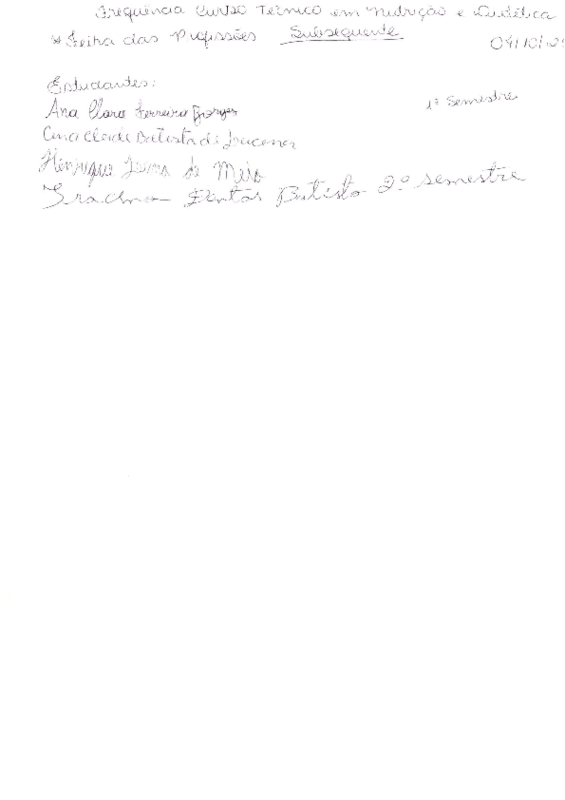 Frequência Curso Técnico em Nutrição e Dietética
* Feira das Profissões Subsequente 04/10/2
Estudantes:
Ana Clara Ferreira Borges 1º Semestre
Ana Cleide Batista de Lucena
Henrique de Melo
Dantas Batista 2º semestre